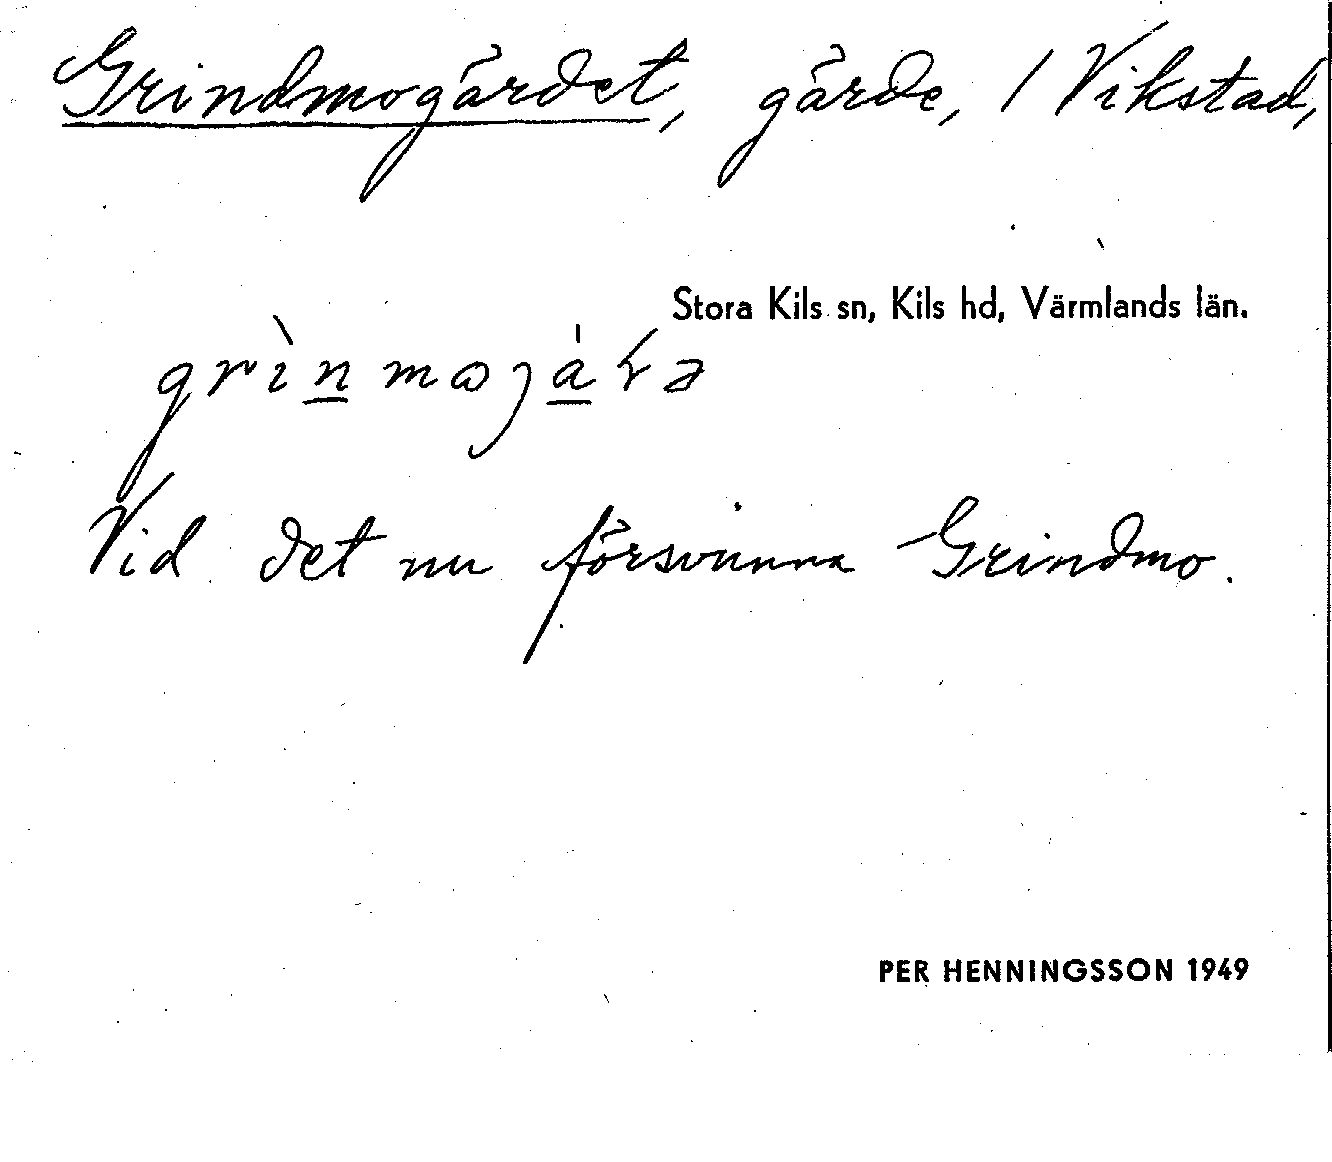 Grindmogärdet, gärde, / Vikstad,
Stora Kils sn, Kils hd, Värmlands län.
Vid det nu försvunna Grindmo.
PER HENNINGSSON 1949